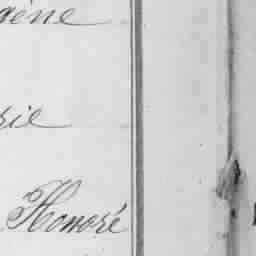 gène
rie
Honoré